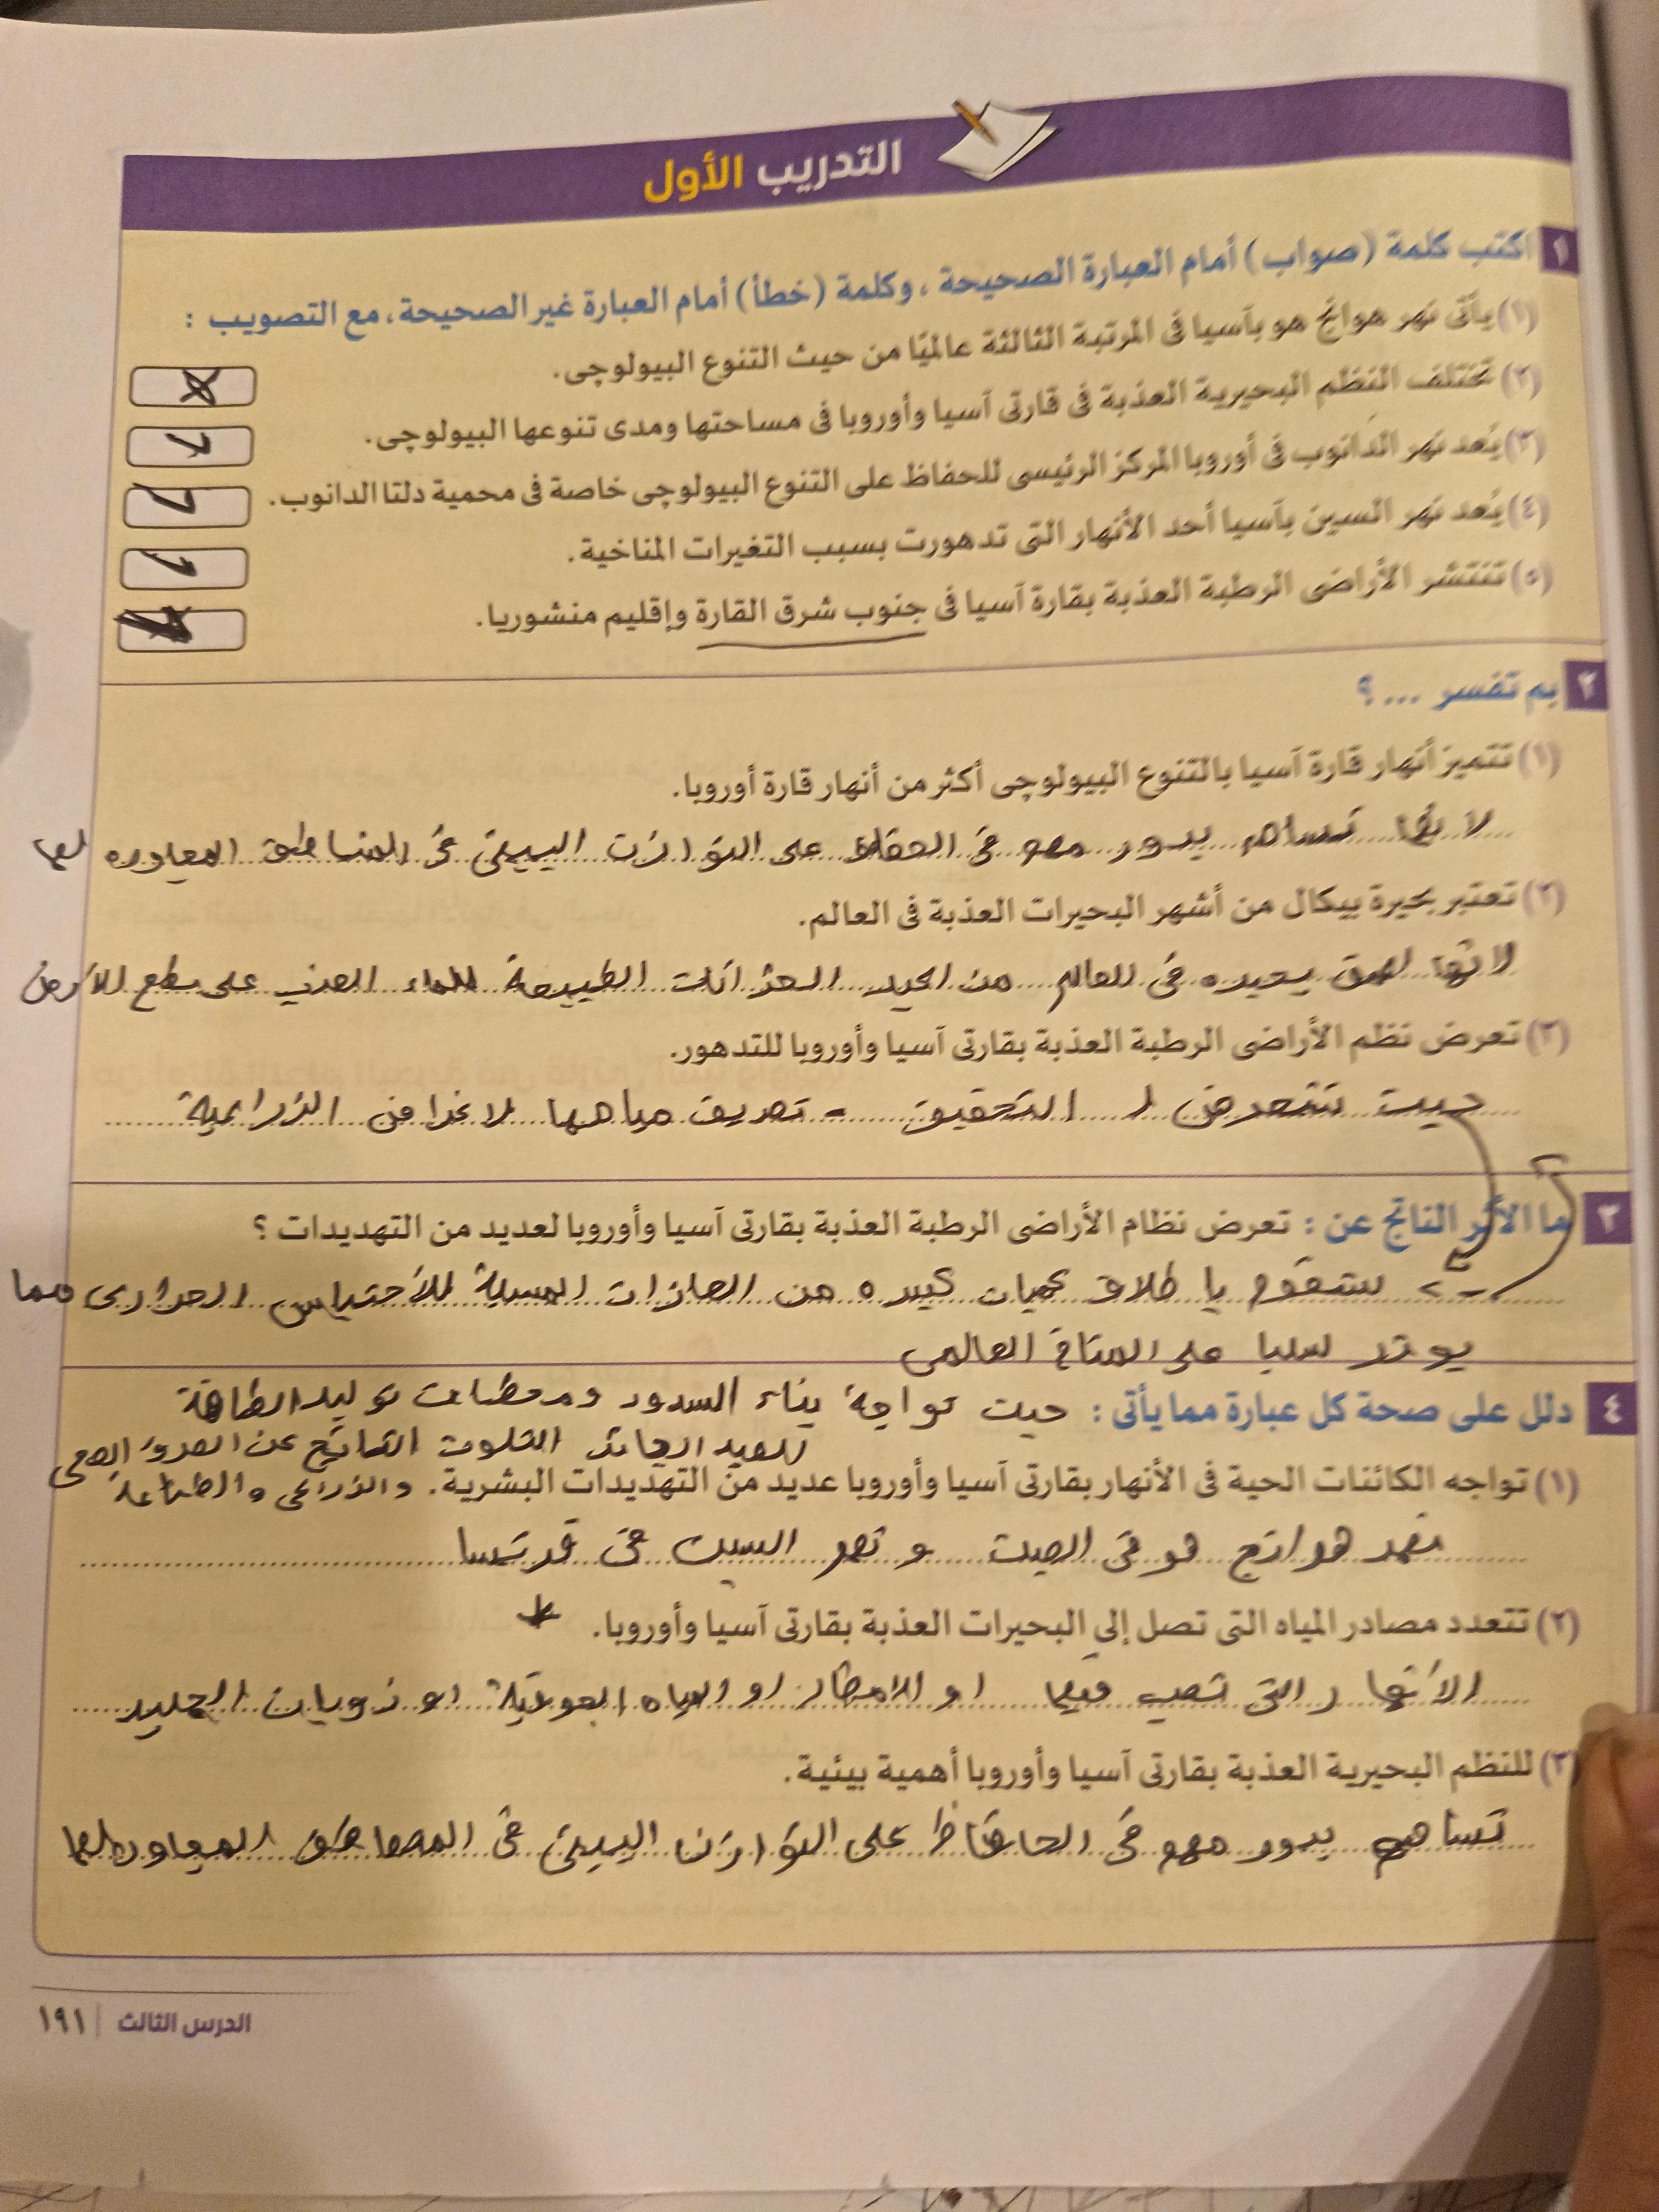 التدريب الأول
١ اكتب كلمة (صواب) أمام العبارة الصحيحة ، وكلمة (خطأ) أمام العبارة غير الصحيحة، مع التصويب :
(١) يأتى نهر هوانج هو بآسيا فى المرتبة الثالثة عالميًا من حيث التنوع البيولوجى.
(٢) تختلف النظم البحيرية العذبة فى قارتى آسيا وأوروبا فى مساحتها ومدى تنوعها البيولوجى.
(٣) يُعد نهر الدانوب فى أوروبا المركز الرئيسى للحفاظ على التنوع البيولوجى خاصة فى محمية دلتا الدانوب.
(٤) يُعد نهر السين بآسيا أحد الأنهار التى تدهورت بسبب التغيرات المناخية.
(٥) تنتشر الأراضى الرطبة العذبة بقارة آسيا فى جنوب شرق القارة وإقليم منشوريا.
٢ بم تفسر ... ؟
(١) تتميز أنهار قارة آسيا بالتنوع البيولوجى أكثر من أنهار قارة أوروبا.
لانها تساهم بدور مهم فى الحفاظ على التوازن البيئى فى المناطق المجاوره لها
(٢) تعتبر بحيرة بيكال من أشهر البحيرات العذبة فى العالم.
لانها اعمق بحيره فى العالم من الخزانات الطبيعية للماء العذب على سطح الأرض
(٣) تعرض نظم الأراضى الرطبة العذبة بقارتى آسيا وأوروبا للتدهور.
حيث تتعرض ل التجفيف - تصريف مياهها لاغراض الزراعية
٣ ما الأثر الناتج عن : تعرض نظام الأراضى الرطبة العذبة بقارتى آسيا وأوروبا لعديد من التهديدات ؟
ستقوم باطلاق كميات كبيره من الغازات المسببة للأحتباس الحرارى مما
يؤثر سلبا على المناخ العالمى
٤ دلل على صحة كل عبارة مما يأتى : حيث تواجة بناء السدود ومحطات توليد الطاقة
الصيد الجائر التلوث الناتج عن الصرف الصحى
(١) تواجه الكائنات الحية فى الأنهار بقارتى آسيا وأوروبا عديد من التهديدات البشرية. والزراعى والصناعى
نهر هوانج هو فى الصين و نهر السين فى فرنسا
(٢) تتعدد مصادر المياه التى تصل إلى البحيرات العذبة بقارتى آسيا وأوروبا.
الأنهار التى تصب فيها او الامطار او المياه الجوفية او ذوبان الجليد
(٣) للنظم البحيرية العذبة بقارتى آسيا وأوروبا أهمية بيئية.
تساهم بدور مهم فى الحافاظ على التوازن البيئى فى المناطق المجاورة لها
الدرس الثالث | ١٩١